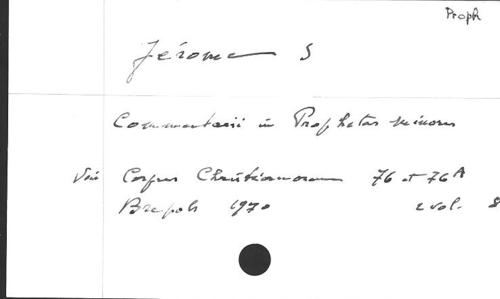 Proph
Jérome S
Commentarii in Prophetas minores
Voir Corpus Christianorum 76 et 76A
Brepols 1970 2 vol. 8